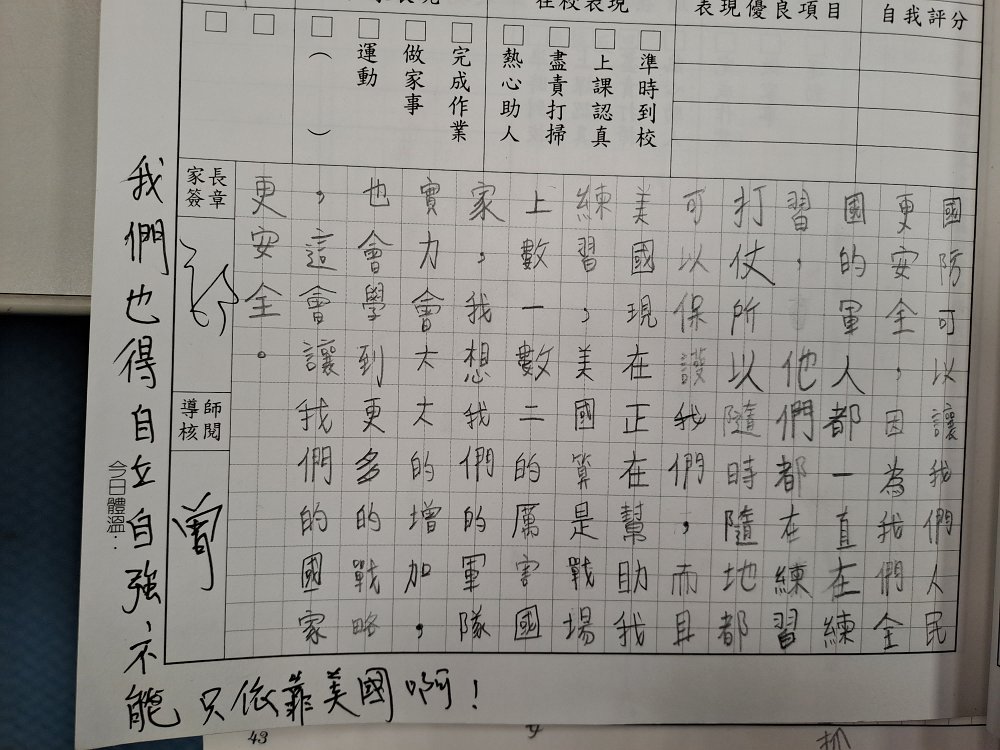 自我評分
表現優良項目
在校表現
□準時到校
□上課認真
□盡責打掃
□熱心助人
□完成作業
□做家事
□運動
□（ ）
□
□
國防可以讓我們人民
更安全，因為我們全
國的軍人都一直在練
習，他們都在練習
打仗所以隨時隨地都
可以保護我們，而且
美國現在正在幫助我
練習，美國算是戰場
上數一數二的厲害國
家，我想我們的軍隊
實力會大大的增加，
也會學到更多的戰略
，這會讓我們的國家
更安全。
家長
簽章
導師
核閱
曾
今日體溫：
我們也得自立自強、不能
只依靠美國啊！
43